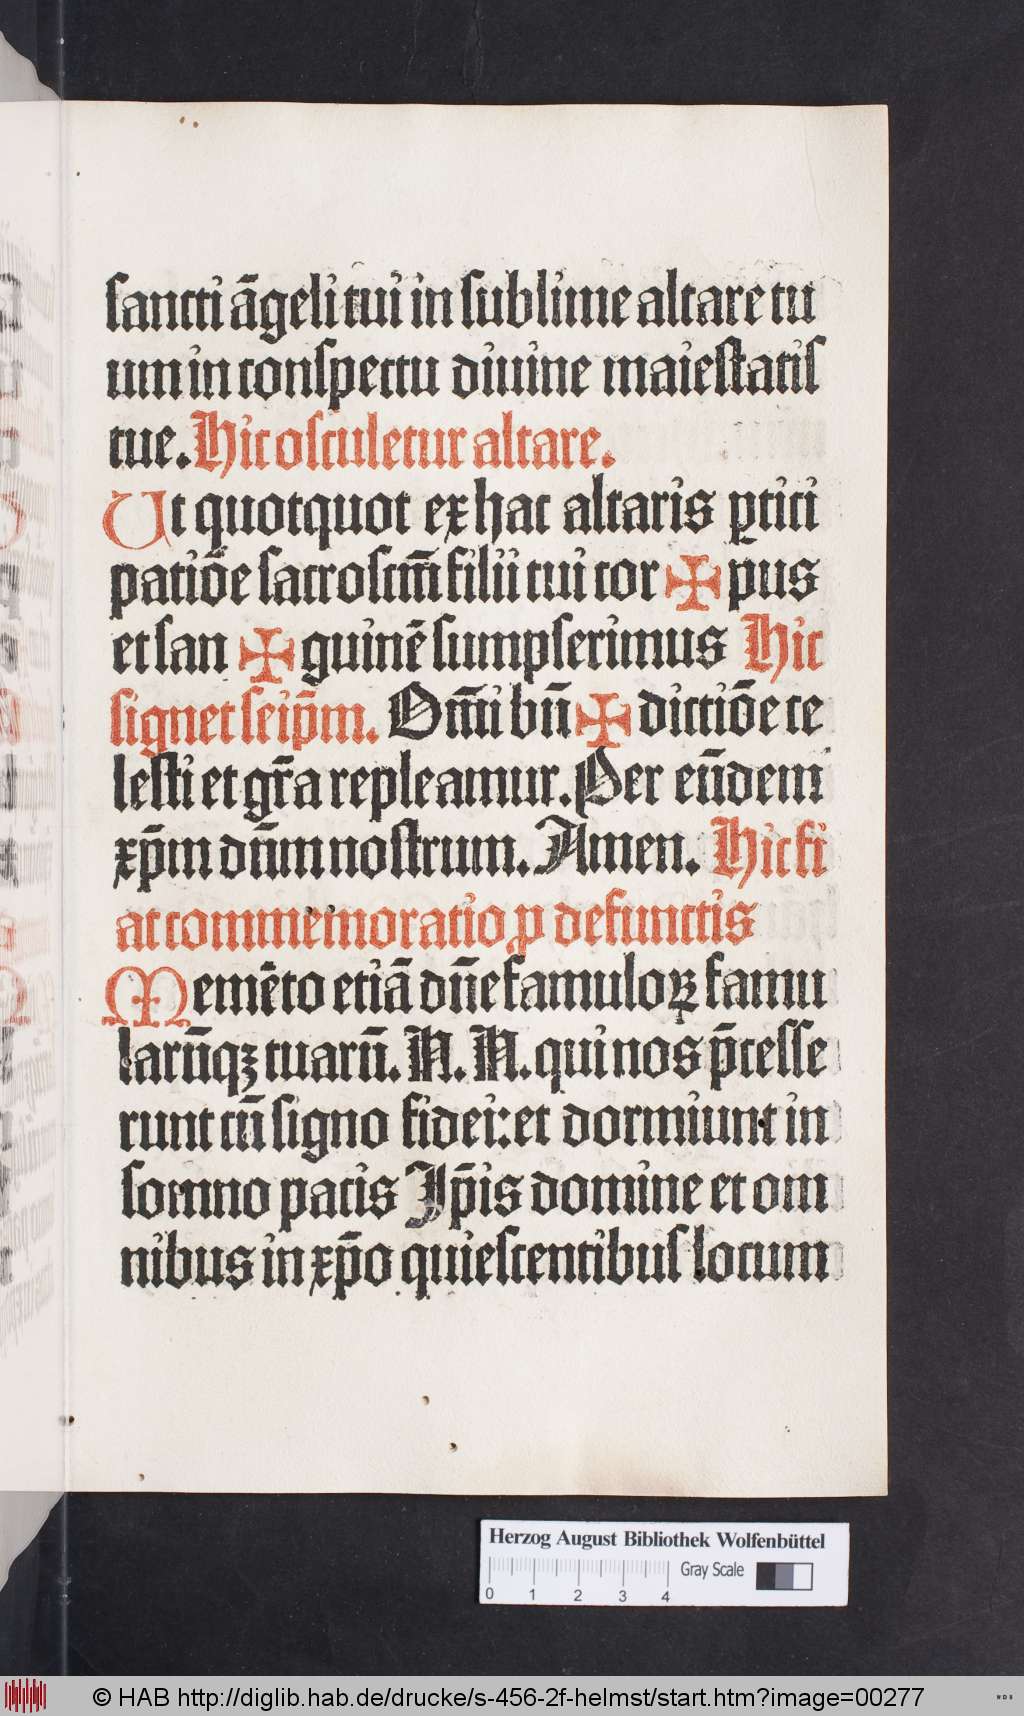 sancti āgeli tui in sublime altare tu
um in conspectu diuine maiestatis
tue. Hic osculetur altare.
Ut quotquot ex hac altaris ꝑtici
patiōe sacroscm̄ filii tui cor ✠ pus
et san ✠ guinē sumpserimus Hic
signet seip̄m. Om̄i bn̄ ✠ dictiōe ce
lesti et gr̄a repleamur. Per eūdem
xp̄m dn̄m nostrum. Amen. Hic fi
at commemoratio ꝓ defunctis
Memēto etiā dn̄e famuloꝝ famu
larūqꝫ tuarū. N. N. qui nos p̄cesse
runt cū signo fidei: et dormiunt in
somno pacis Ip̄is domine et om
nibus in xp̄o quiescentibus locum
Herzog August Bibliothek Wolfenbüttel
Gray Scale
0 1 2 3 4
© HAB http://diglib.hab.de/drucke/s-456-2f-helmst/start.htm?image=00277